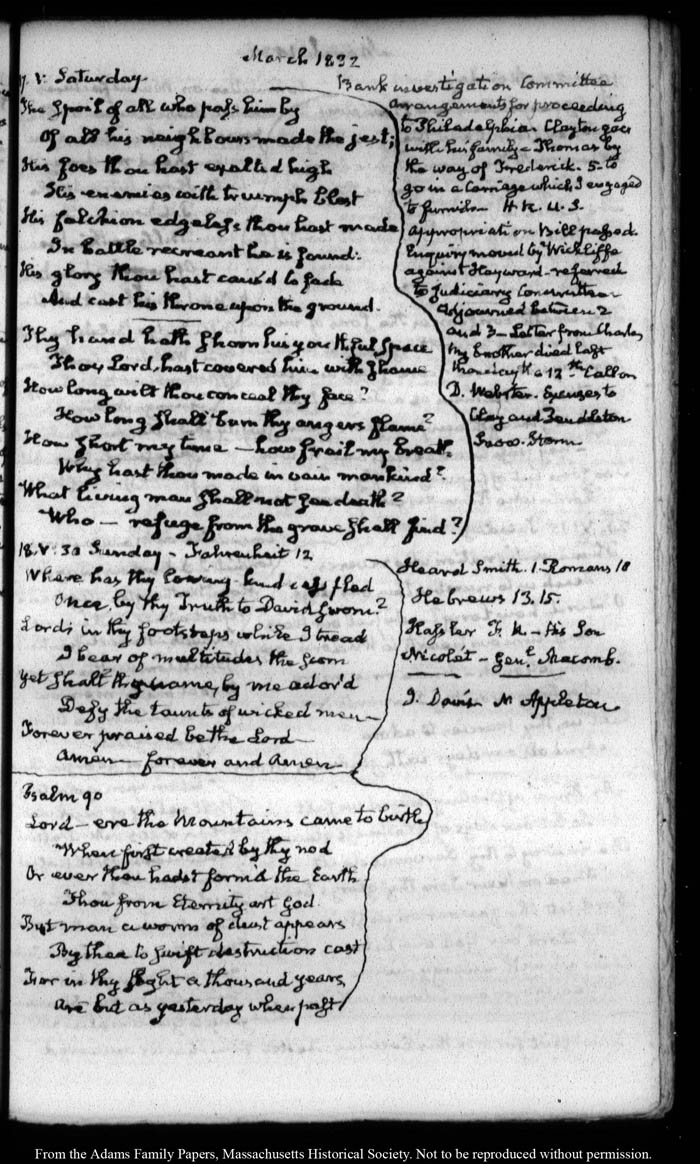 March 1832
17. V: Saturday.
The spoil of all who pass him by
Of all his neighbours made the jest;
His foes thou hast exalted high
His enemies with triumph blest
His falchion edgeless thou hast made
In battle recreant he is found:
His glory thou hast caus'd to fade
And cast his throne upon the ground.
Thy hand hath shorn his youthful space
Thou, Lord, hast covered him with shame
How long wilt thou conceal thy face?
How long shall burn thy angers flame?
How short my time — how frail my breath.
Why hast thou made in vain mankind?
What living man shall not see death?
Who — refuge from the grave shall find?
Bank investigation Committee
arrangements for proceeding
to Philadelphia. Clayton goes
with his family — Thomas by
the way of Frederick. 5 to
go in a Carriage which I engaged
to furnish — H. R. U. S.
Appropriation Bill passed.
Enquiry moved by Wickliffe
against Hayward — referred
to Judiciary Committee
Adjourned between 2
and 3 — Letter from Charles
My brother died last
12th Call on
D. Webster. Excuses to
Clay and Pendleton
Snow. Storm
18. V: 30 Sunday — Fahrenheit 12
Where has thy loving-kindness fled
Once, by thy Truth to David sworn?
Lord! in thy footsteps while I tread
I bear of multitudes the scorn
Yet shalt thy name, by me ador'd
Defy the taunts of wicked men —
Forever praised be the Lord —
Amen — forever and Amen
Heard Smith. 1. Romans 10
Hebrews 13.15.
Hassler F. R. — His Son
Nicolét — Genl. Macomb.
J. Davis N Appleton
Psalm 90
Lord — ere the Mountains came to birth
When first created by thy nod
Or ever thou hadst form'd the Earth
Thou from Eternity art God.
But man a worm of dust appears
By thee to swift destruction cast
For in thy sight a thousand years
Are but as yesterday when past
From the Adams Family Papers, Massachusetts Historical Society. Not to be reproduced without permission.